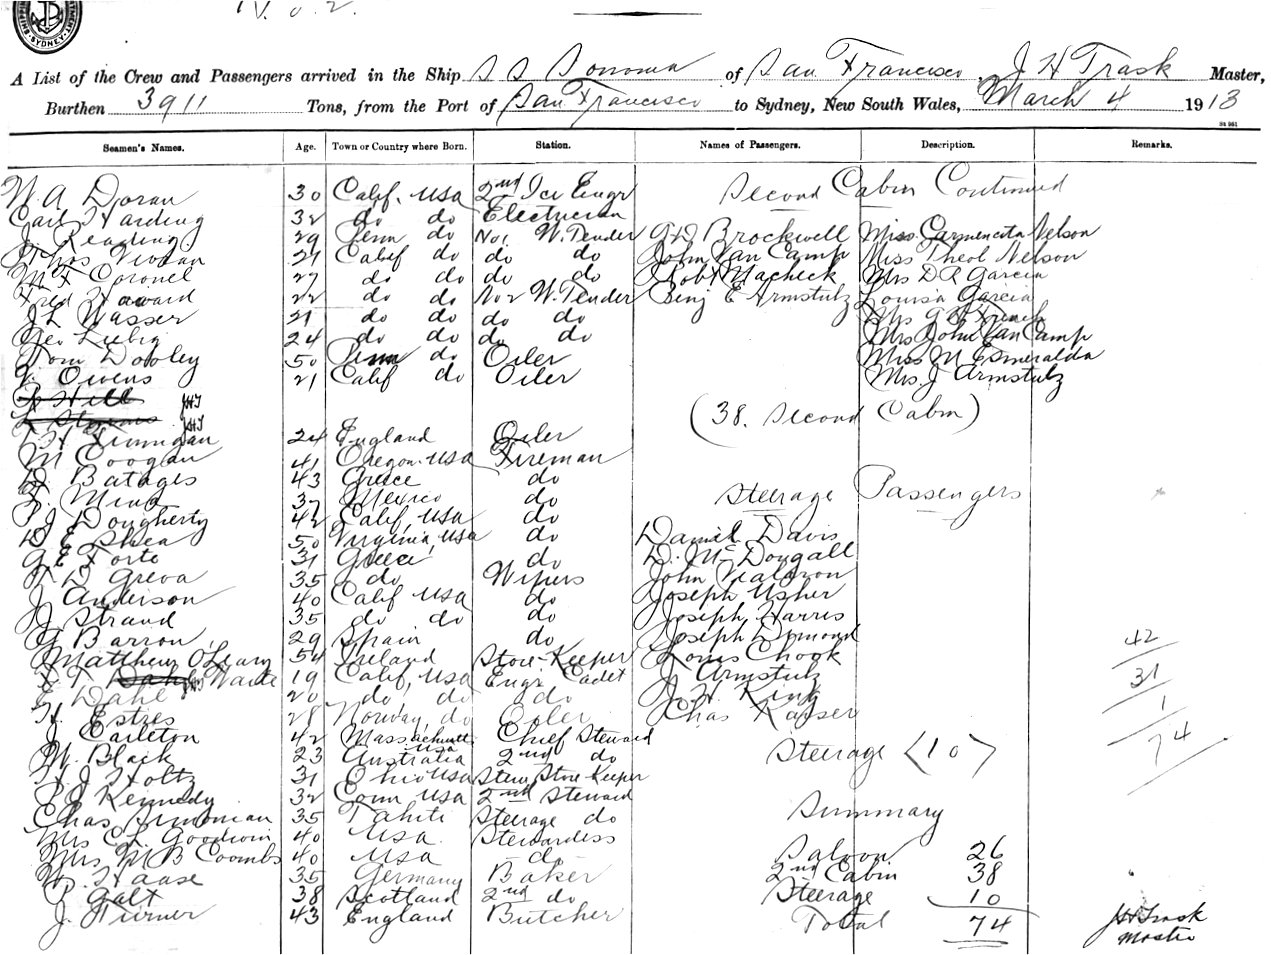 No. 2.
SYDNEY
A List of the Crew and Passengers arrived in the Ship S S Sonoma of San Francisco, J H Trask Master,
Burthen 3911 Tons, from the Port of San Francisco to Sydney, New South Wales, March 4 1913
Seamen's Names. Age. Town or Country where Born. Station. Names of Passengers. Description. Remarks.
W. A Doran 30 Calif. USA 2nd Ice Engr Second Cabin Continued
Carl Harding 32 do do Electrician
J Reading 29 Penn do No1 W. Tender G D Brockwell Miss Carmencita Nelson
Thos Vivian 21 Calif do do do John Van Camp Miss Theol Nelson
M F Coronel 27 do do do do Robt Macheck Mrs D R Garcia
Fred Haward 22 do do No 2 W. Tender Benj E Armstutz Louisa Garcia
J L Wasser 21 do do do do Mrs G B French
Geo Liebig 24 do do do do Mrs John Van Camp
Tom Dooley 50 Penn do Oiler Miss M Esmeralda
V. Owens 21 Calif do Oiler Mrs. J Armstutz
Hill JHT
JHT (38. Second Cabin)
T H Finnigan 24 England Oiler
M Coogan 41 Oregon USA Fireman
D. Batages 43 Greece do
F. Mina 37 Mexico do Steerage Passengers
P J Dougherty 42 Calif, USA do
D E Shea 50 Virginia, USA do Daniel Davis
G E Forte 31 Greece do D. McDougall
T D Greva 35 do Wipers John Waldron
J Anderson 40 Calif USA do Joseph Usher
J Strand 35 do do do Joseph Harris
G Barron 29 Spain do Joseph Dimond 42
Matthew O'Leary 54 Ireland Store-Keeper Louis Chook
F. T. Dahl Waite JHT 19 Calif, USA Engr Cadet J. Armstutz 31
E Dahl 20 do do do J. H King 1
H. Estres 28 Norway, do Oiler Chas Kayser
J Carleton 42 Massachusetts USA Chief Steward 74
M. Black 23 Australia 2nd do Steerage (10)
H J Holtz 31 Ohio USA Stew Store Keeper
P J Kennedy 32 Conn USA 2nd Steward
Chas Simonian 35 Tahiti Steerage do Summary
Mrs C. L. Goodwin 40 USA Stewardess
Mrs M B Coombs 40 USA do Saloon 26
W. Haase 35 Germany Baker 2nd Cabin 38
P. Galt 38 Scotland 2nd do Steerage 10
J. Turner 43 England Butcher Total 74 JH Trask
Master